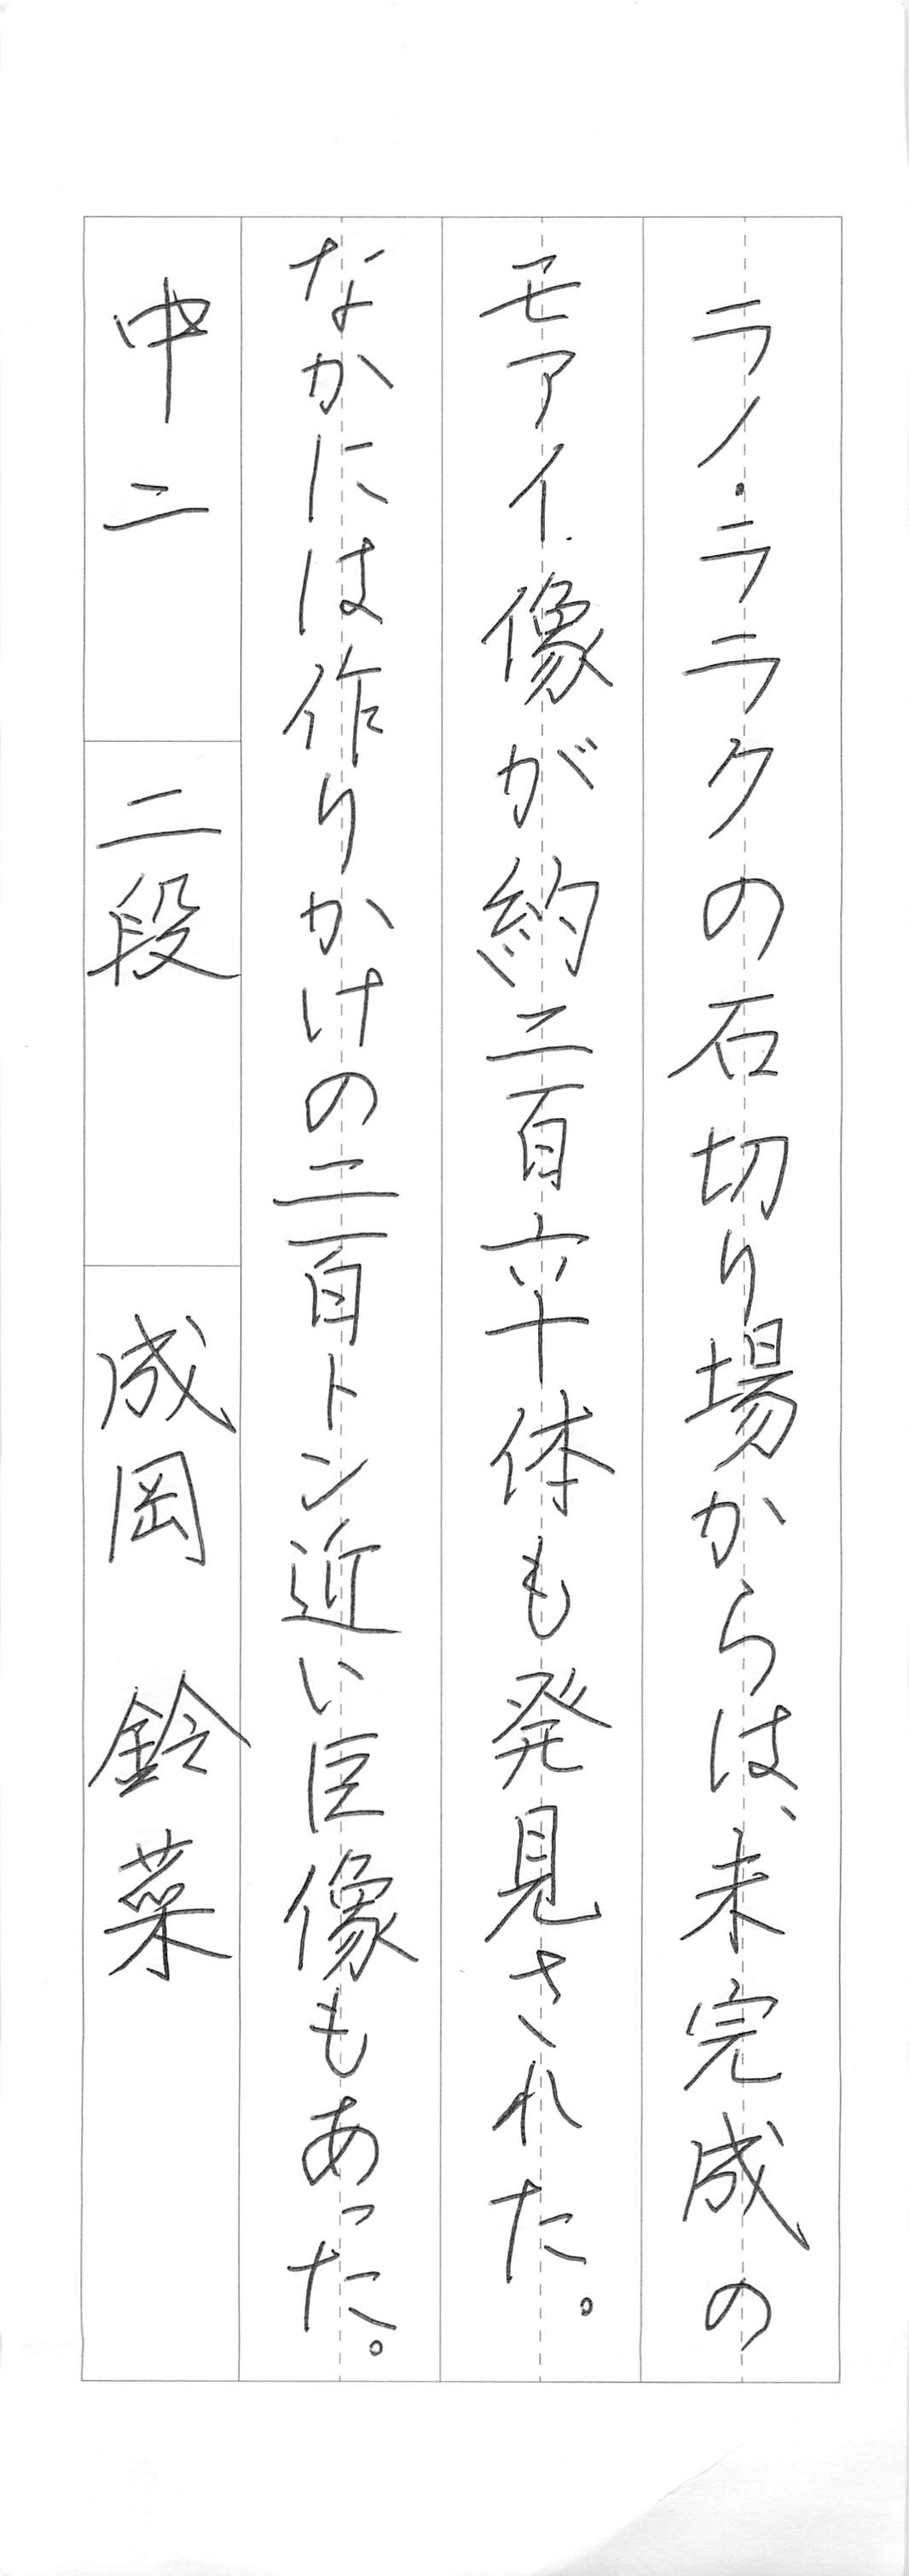 ラノ・ララクの石切り場からは、未完成の
モアイ像が約二百六十体も発見された。
なかには作りかけの二百トン近い巨像もあった。
中二 二段 成岡 鈴菜